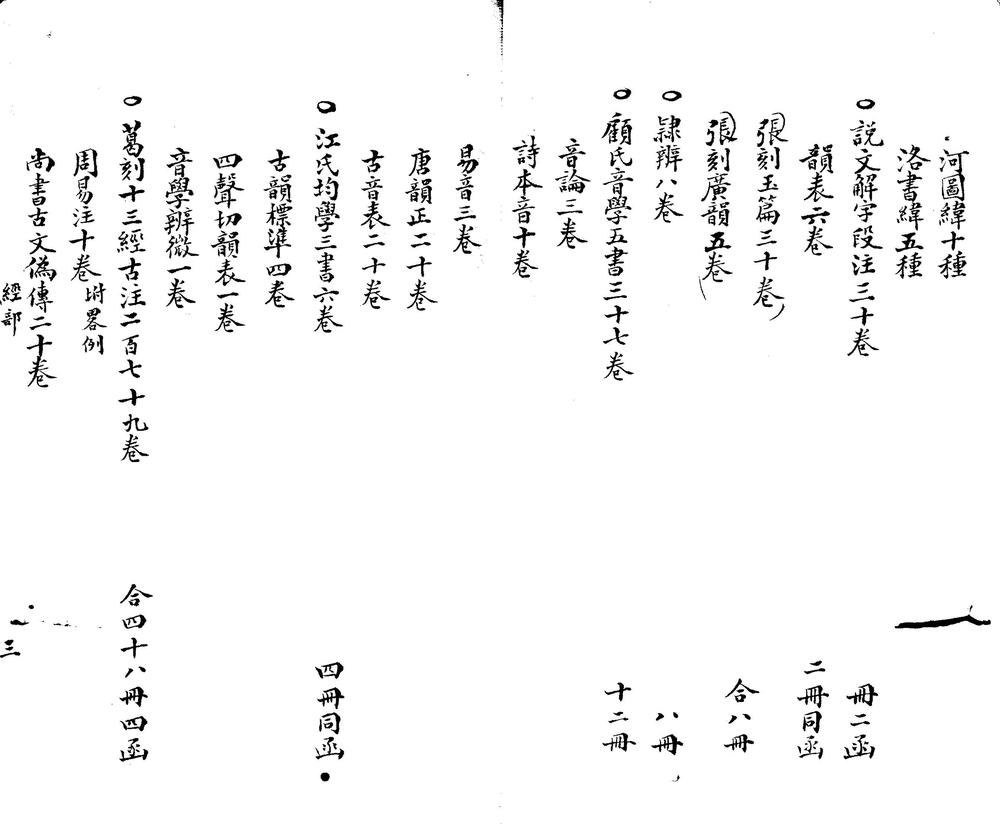 河圖緯十種
洛書緯五種
○說文解字段注三十卷 冊二函
韻表六卷 二冊同函
張刻玉篇三十卷
張刻廣韻五卷 合八冊
○隷辨八卷 八冊
○顧氏音學五書三十七卷 十二冊
音論三卷
詩本音十卷
易音三卷
唐韻正二十卷
古音表二十卷
○江氏均學三書六卷 四冊同函
古韻標準四卷
四聲切韻表一卷
音學辨微一卷
○葛刻十三經古注二百七十九卷 合四十八冊四函
周易注十卷 坿畧例
尚書古文偽傳二十卷
經部 三